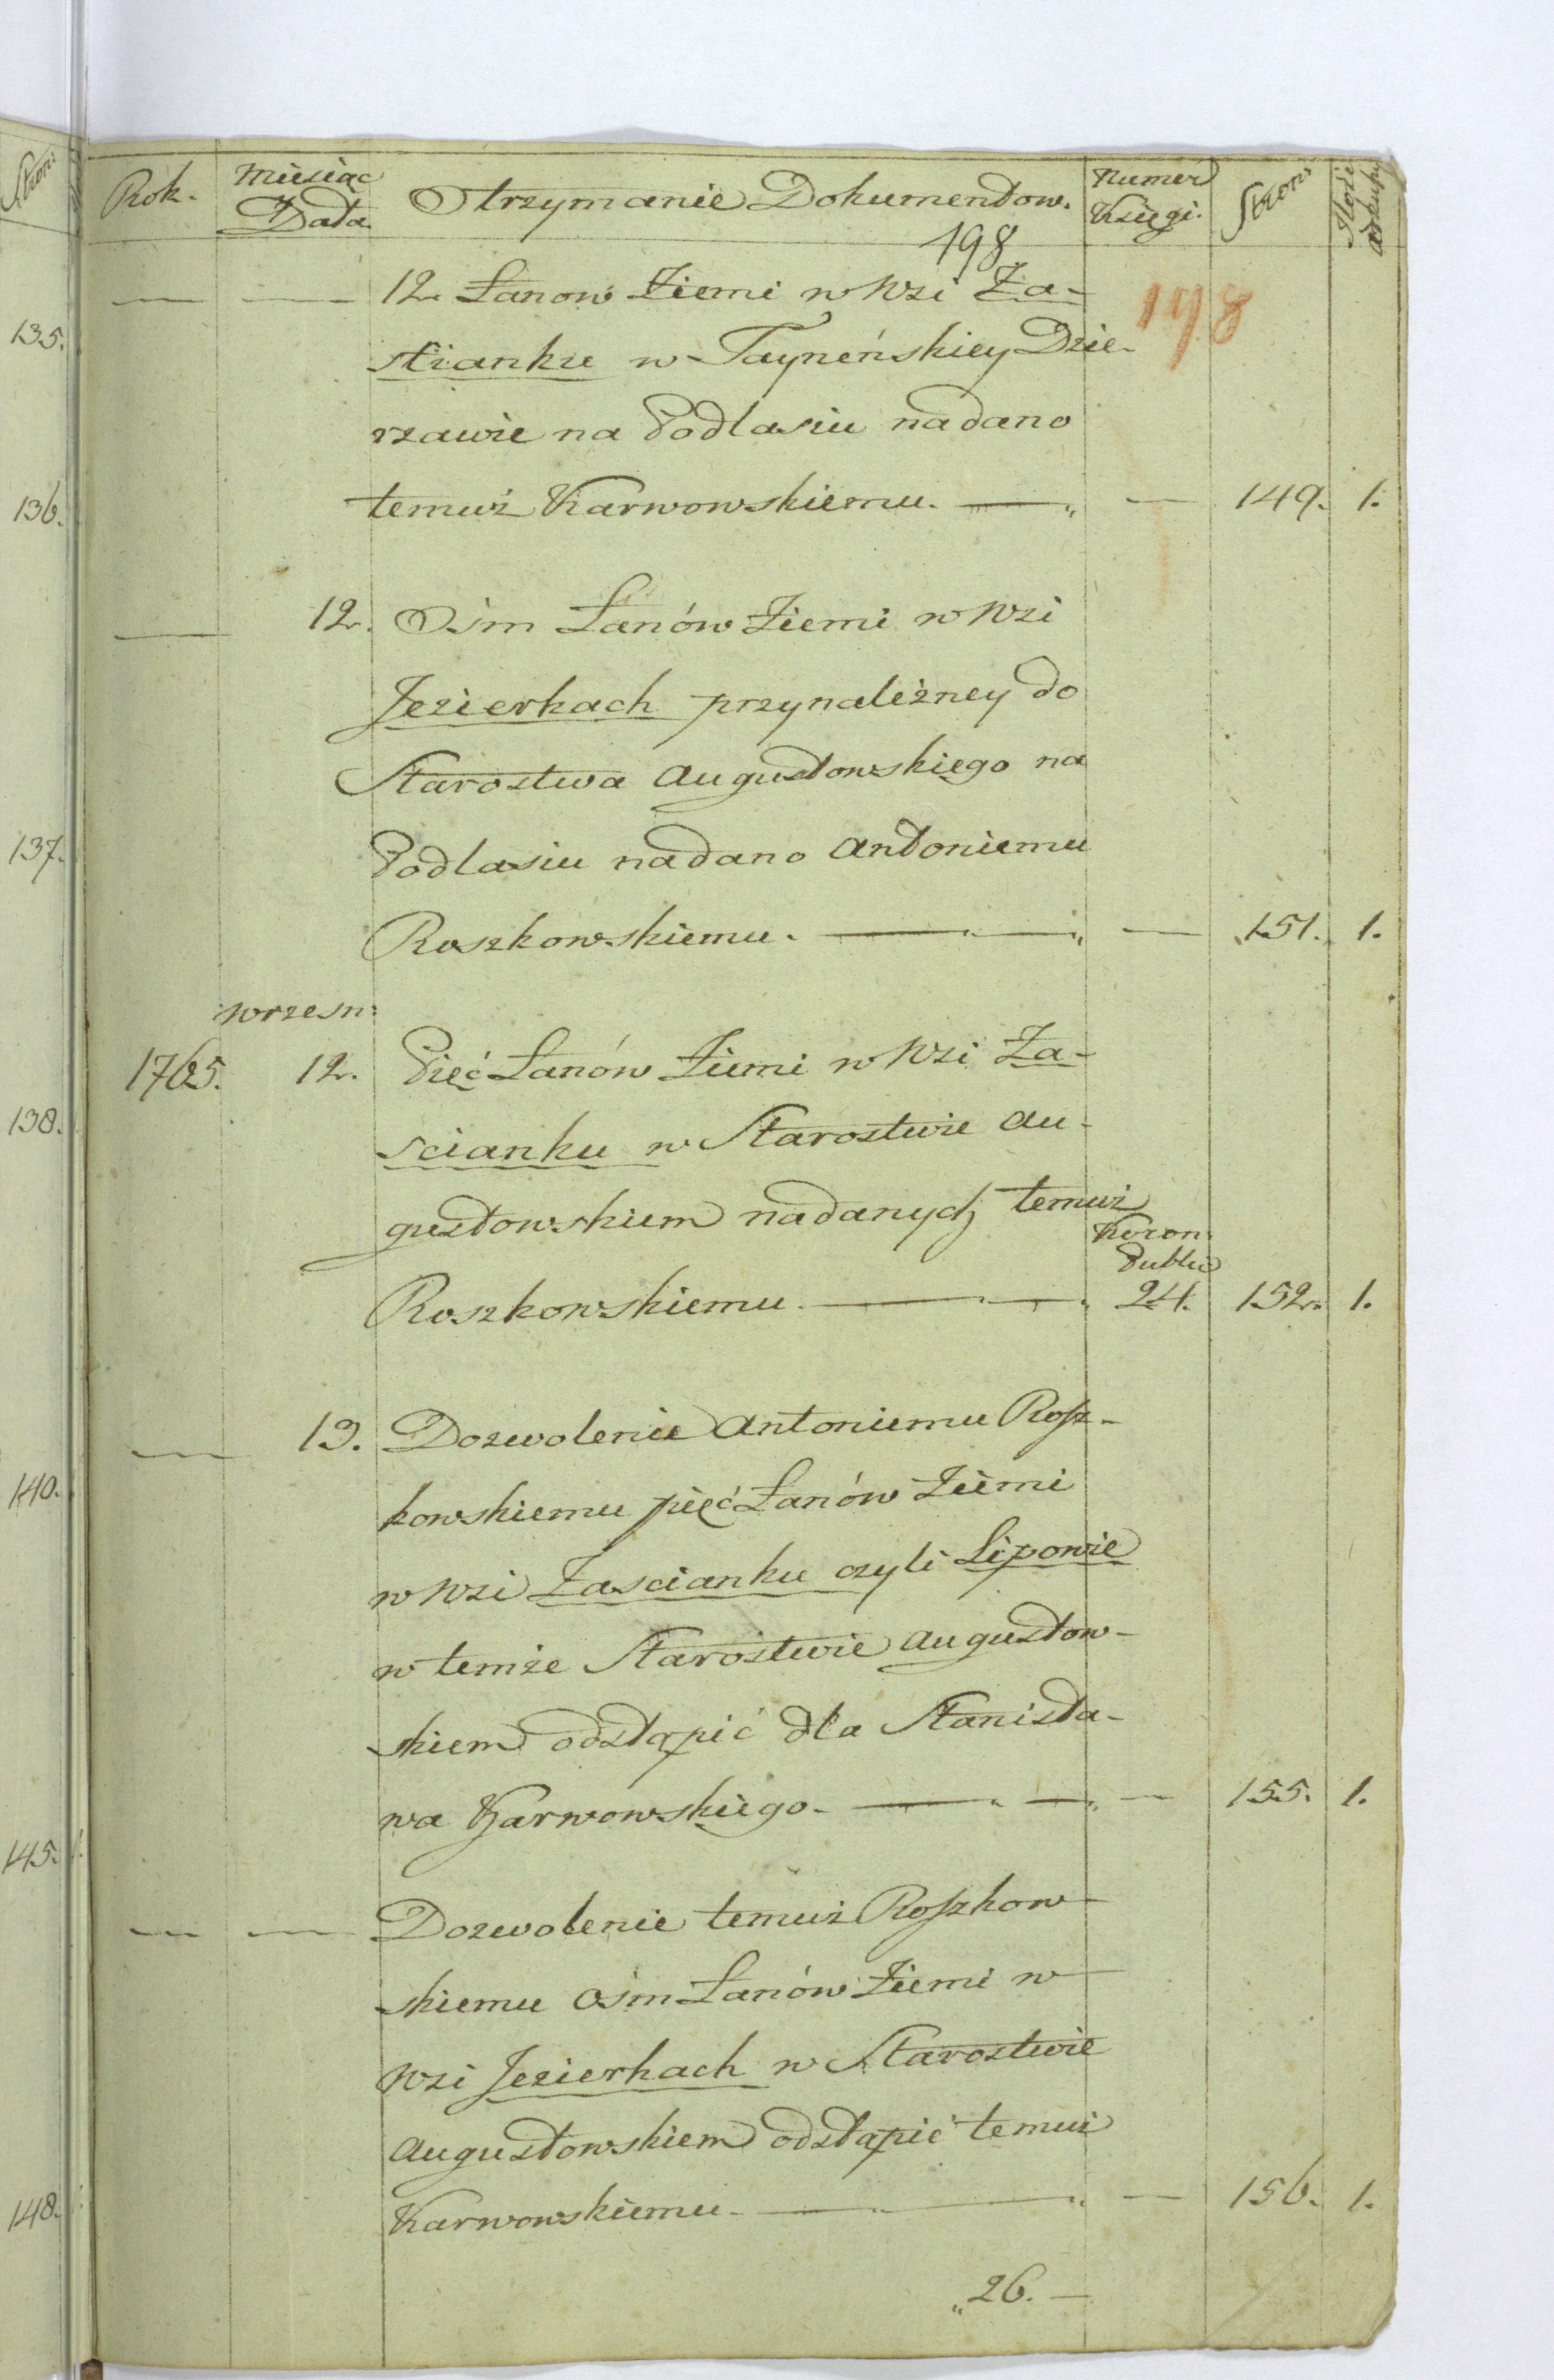 Stron:
Rok. Miesiąc Data Otrzymanie Dokumentow. Numer Księgi. Stron: Ilość
198
198
12. Łanow Ziemi w Wsi Za-
135.
stianku w Tayneńskiey Dzie-
rzawie na Podlasiu nadano
136.
temuż Karwowskiemu. — — 149. 1.
— 12. Ośm Łanów Ziemi w Wsi
Jezierkach przynależney do
Starostwa Augustowskiego na
137.
Podlasiu nadano Antoniemu
Roszkowskiemu. — — 151. 1.
Wrzesn:
1765. 12. Pięć Łanów Ziemi w Wsi Za-
138.
scianku w Starostwie Au-
gustowskiem nadanych temuż
Koron:
Public
Roszkowskiemu — 24. 152. 1.
— 13. Dozwolenie Antoniemu Rosz-
140.
kowskiemu pięć Łanów Ziemi
w Wsi Zascianku czyli Lipowie
w temże Starostwie Augustow-
skiem odstąpić dla Stanisła-
wa Karwowskiego. — — 155. 1.
145. 1.
— — Dozwolenie temuż Roszkow-
skiemu ośm Łanów Ziemi w
Wsi Jezierkach w Starostwie
Augustowskiem odstąpić temuż
148.
Karwowskiemu. — — 156. 1.
26. —